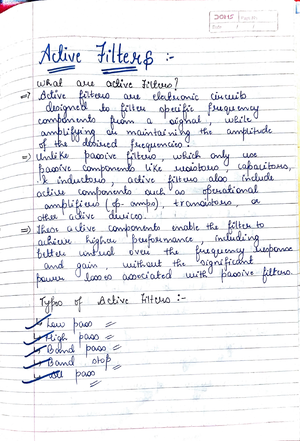 DOMS
Active Filters :-
What are active filters?
=> Active filters are elektronic circuits
designed to filter specific frequency
components from a signal, while
amplifying or maintaining the amplitude
of the desired frequencies.
=> Unlike passive filters, which only use
passive components like resistors, capacitors,
& inductors, active filters also include
active components such as operational
amplifiers (op-amps), transistors, or
other active devices.
=> These active components enable the filter to
achieve higher performance, including
better control over the frequency response
and gain, without the significant
power losses associated with passive filters.
Types of Active Filters :-
Low pass
High pass
Band pass
Band stop
All pass